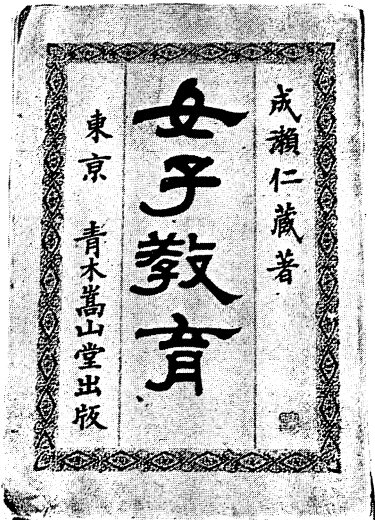 成瀬仁蔵著
女子敎育
東京 青木嵩山堂出版